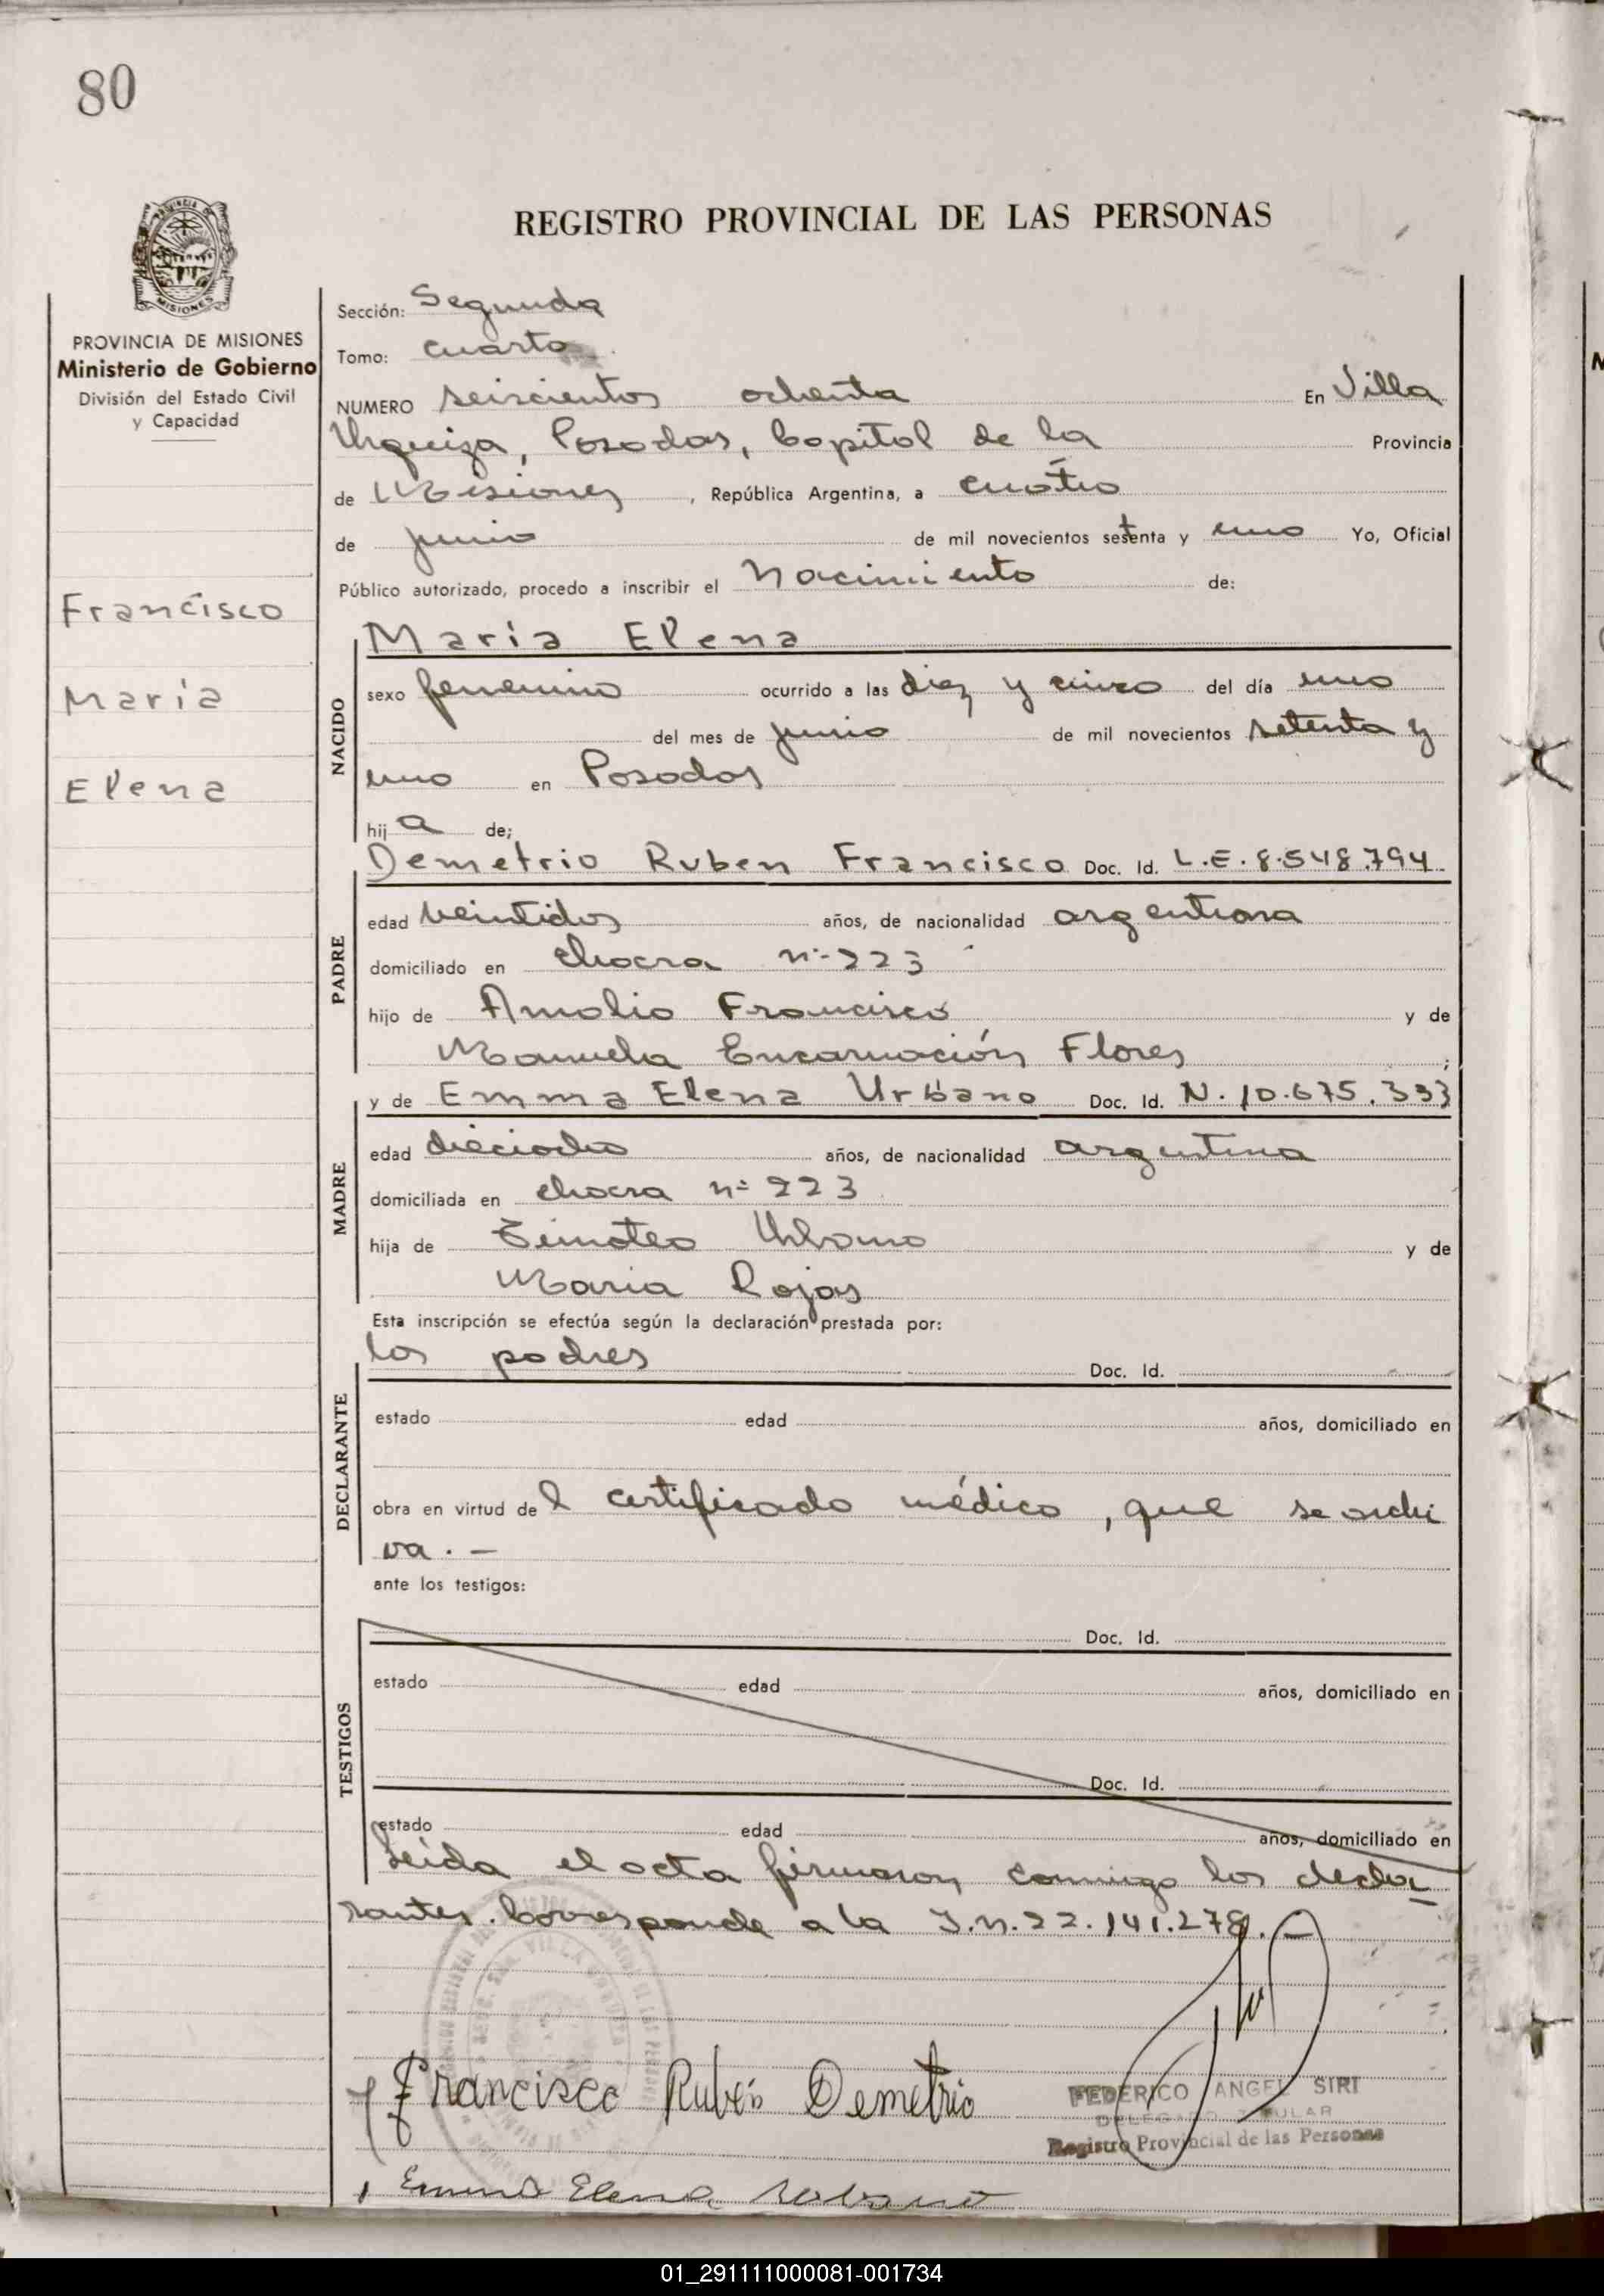 80
REGISTRO PROVINCIAL DE LAS PERSONAS
MISIONES
PROVINCIA DE MISIONES
Ministerio de Gobierno
División del Estado Civil
y Capacidad
Francisco
María
Elena
Sección: Segunda
Tomo: cuarto
NUMERO seiscientos ochenta En Villa
Urquiza, Posadas, Capital de la Provincia
de Misiones, República Argentina, a cuatro
de junio de mil novecientos setenta y uno Yo, Oficial
Público autorizado, procedo a inscribir el Nacimiento de:
NACIDO
María Elena
sexo femenino ocurrido a las diez y cinco del día uno
del mes de junio de mil novecientos setenta y
uno en Posadas
hij a de;
PADRE
Demetrio Ruben Francisco Doc. Id. L.E. 8.548.794
edad veintidos años, de nacionalidad argentina
domiciliado en chacra nº 223
hijo de Amalio Francisco y de
Manuela Encarnación Flores ;
MADRE
y de Emma Elena Urbano Doc. Id. N. 10.675.333
edad dieciocho años, de nacionalidad argentina
domiciliada en chacra nº 223
hija de Timoteo Urbano y de
Maria Rojas
Esta inscripción se efectúa según la declaración prestada por:
DECLARANTE
los padres Doc. Id.
estado edad años, domiciliado en
obra en virtud de l certificado médico, que se archi
va. -
ante los testigos:
TESTIGOS
Doc. Id.
estado edad años, domiciliado en
Doc. Id.
estado edad años, domiciliado en
Leída el acta firmaron conmigo los decla-
rantes. Corresponde a la I.N. 22.141.278. -
Francisco Rubén Demetrio
FEDERICO ANGEL SIRI
DELEGADO TITULAR
Registro Provincial de las Personas
Emma Elena Urbano
01_291111000081-001734